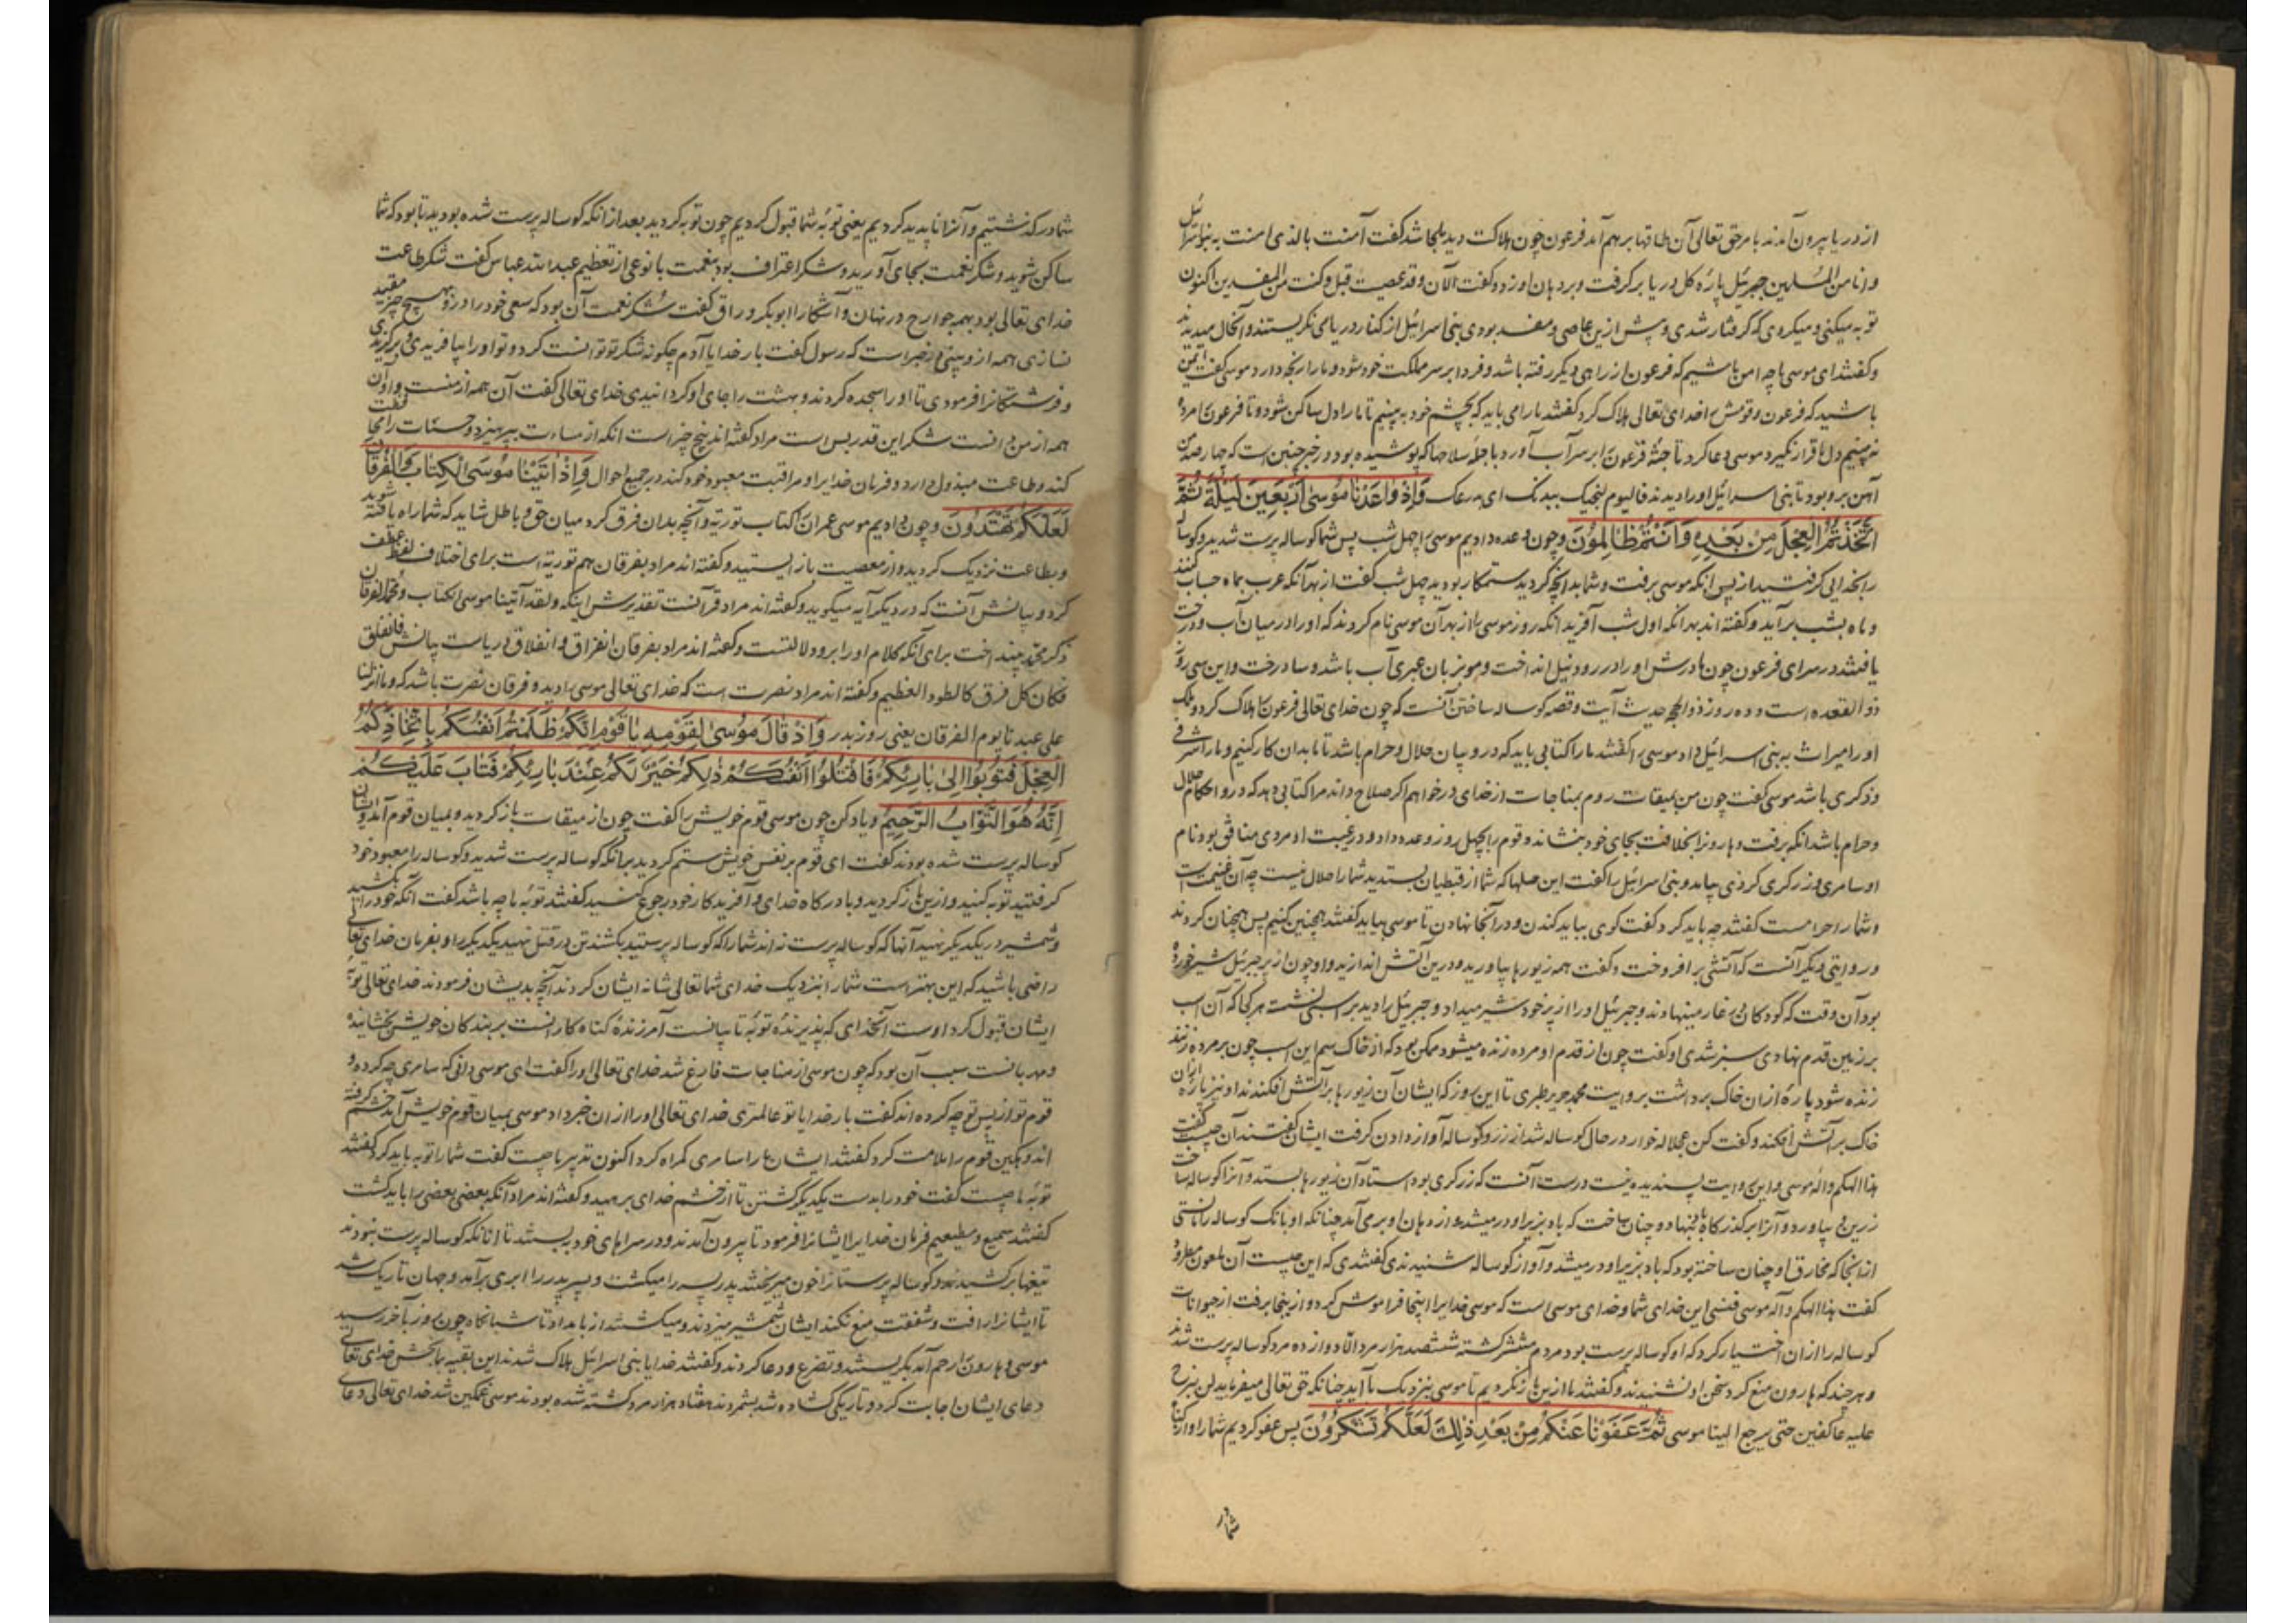 از دریا بیرون آمدند بامر حق تعالی آن طاقها بر هم آمد فرعون چون هلاکت دید ملجا شد گفت آمنت بالذی امنت به بنو اسرائیل
وانا من المسلمین جبرئیل پارهٔ کل دریا بر گرفت و بر دهان او زد و گفت الآن وقد عصیت قبل وکنت من المفسدین اکنون
توبه میکنی و میکروی که گرفتار شدی و پیش ازین عاصی و مفسد بودی بنی اسرائیل از کنار دریا می نگریستند و آنحال میدیدند
و گفتند ای موسی ما چه امن باشیم که فرعون از راهی دیگر رفته باشد و فردا بر سر مملکت خود شود و ما را رنجه دارد موسی گفت ایمن
باشید که فرعون و قومش را خدای تعالی هلاک کرد گفتند ما را می باید که بچشم خود به بینیم تا ما را دل ساکن شود و تا فرعون را مرده
نه بینیم دل ما قرار نگیرد موسی دعا کرد تا جثهٔ فرعون را بر سر آب آورد با جملهٔ سلاحها که پوشیده بود و در خبر چنین است که چهارصد من
آهن برو بود تا بنی اسرائیل او را دیدند فالیوم ننجیک ببدنک ای بدرعک وَاِذْ وَاعَدْنَا مُوسٰی اَرْبَعِینَ لَیْلَةً ثُمَّ
اتَّخَذْتُمُ الْعِجْلَ مِنْ بَعْدِهِ وَاَنْتُمْ ظَالِمُونَ و چون وعده دادیم موسی را چهل شب پس شما کوساله پرست شدید و کوساله
را بخدایی گرفتید از پس آنکه موسی برفت و شما بدانچه کردید ستمکار بودید چهل شب گفت از بهر آنکه عرب بماه حساب کنند
و ماه بشب برآید و گفته اند بهر آنکه اول شب آفرید آنکه روز موسی را از بهر آن موسی نام کردند که او را در میان آب و درخت
یافتند در سرای فرعون چون مادرش او را در رود نیل انداخت و مو بزبان عبری آب باشد و سا درخت و این سی روز
ذو القعده است و ده روز ذو الحجه حدیث آیت و قصه کوساله ساختن آنست که چون خدای تعالی فرعون را هلاک کرد و ملک
او را میراث به بنی اسرائیل داد موسی را گفتند ما را کتابی باید که درو بیان حلال و حرام باشد تا ما بدان کار کنیم و ما را شرفی
و ذکری باشد موسی گفت چون من بمیقات روم بمناجات از خدای درخواهم اگر صلاح داند مرا کتابی دهد که درو احکام حلال
و حرام باشد آنکه برفت و هارون را بخلافت بجای خود بنشاند و قوم را چهل روز وعده داد و در غیبت او مردی منافق بود نام
او سامری و زرگری کردی بیامد و بنی اسرائیل را گفت این حلیها که شما از قبطیان بستدید شما را حلال نیست چه آن غنیمت است
و شما را حرامست گفتند چه باید کرد گفت کوی بباید کندن و در آنجا نهادن تا موسی بیاید گفتند همچنین کنیم پس همچنان کردند
و روایتی دیگر آنست که آتشی بر افروخت و گفت همه زیورها بیاورید و درین آتش اندازید و او چون از پر جبرئیل شیر خورده
بود آن وقت که کودکان در غار مینهادند و جبرئیل او را از پر خود شیر میداد و جبرئیل را دید بر اسبی نشسته هر کجا که آن اسب
بر زمین قدم نهادی سبز شدی او گفت چون از قدم او مرده زنده میشود ممکن بود که از خاک سم این اسب چون بر مرده زنند
زنده شود پارهٔ از ان خاک برداشت بروایت محمد جریر طبری تا این روز که ایشان آن زیورها بر آتش افکندند او نیز پارهٔ ازان
خاک بر آتش افکند و گفت کن عجلا له خوار در حال کوساله شد از زر و کوساله آواز دادن گرفت ایشان گفتند آن چیست گفت
هذا الهکم واله موسی و این روایت پسندیده نیست درست آنست که زرگری بود استاد آن زیورها بستد و آنرا کوساله ساخت
زرین و بیاورد و آنرا بر گذرگاه باد بنهاد و چنان ساخت که باد بزیر او در میشد و از دهان او بر می آمد چنانکه او بانگ کوساله را مانستی
از آنجا که مخارق او چنان ساخته بود که باد بزیر او در میشد و آواز کوساله شنیدندی گفتندی که این چیست آن ملعون مطرود
گفت هذا الهکم واله موسی فنسی این خدای شما و خدای موسی است که موسی خدایرا اینجا فراموش کرد و از ینجا برفت از حیوانات
کوساله را ازان اختیار کرد که او کوساله پرست بود مردم متفرق گشته ششصد هزار مرد الّا دوازده مرد کوساله پرست شدند
و هر چند که هارون منع کرد سخن او نشنیدند و گفتند ما ازین باز نگردیم تا موسی بنزدیک ما آید چنانکه حق تعالی میفرماید لن نبرح
علیه عاکفین حتی یرجع الینا موسی ثُمَّ عَفَوْنَا عَنْکُمْ مِنْ بَعْدِ ذٰلِکَ لَعَلَّکُمْ تَشْکُرُونَ پس عفو کردیم شما را و از گناه
شما در
شما در گذشتیم و آنرا ناپدید کردیم یعنی توبهٔ شما قبول کردیم چون توبه کردید بعد از آنکه کوساله پرست شده بودید تا بود که شما
ساکن شوید و شکر نعمت بجای آورید و شکر اعتراف بود بنعمت با نوعی از تعظیم عبد الله عباس گفت شکر طاعت
خدای تعالی بود بهمه جوارح در نهان و آشکارا ابوبکر وراق گفت شکر نعمت آن بود که سعی خود را درو بهیچ چیز مقید
نسازی همه ازو بینی در خبر است که رسول گفت بار خدایا آدم چگونه شکر تو توانست کرد و تو او را بیافریدی و برگزیدی
و فرشتگانرا فرمودی تا او را سجده کردند و بهشت را جای او گردانیدی خدای تعالی گفت آن همه از منست و او آن
همه از من دانست شکر این قدر بس است مراد گفته اند پنج چیز است آنکه از مساءت بپرهیزد و حسنات را محافظت
کند و طاعت مبذول دارد و فرمان خدایرا و مراقبت معبود خود کند در جمیع احوال وَاِذْ اٰتَیْنَا مُوسَی الْکِتَابَ وَالْفُرْقَانَ
لَعَلَّکُمْ تَهْتَدُونَ و چون دادیم موسی عمران را کتاب توریة و آنچه بدان فرق کرد میان حق و باطل شاید که شما راه یافته شوید
و بطاعت نزدیک گردید و از معصیت باز ایستید و گفته اند مراد بفرقان هم توریة است برای اختلاف لفظ عطف
کرد و بیانش آنست که در دیگر آیه میگوید و گفته اند مراد قرآنست تقدیرش اینکه ولقد آتینا موسی الکتاب ومحمد الفرقان
ذکر محمد بینداخت برای آنکه کلام او را برو دلالتست و گفته اند مراد بفرقان انفراق و انفلاق دریاست بیانش فانفلق
فکان کل فرق کالطود العظیم و گفته اند مراد نصرت است که خدای تعالی موسی را دید و فرقان نصرت باشد که وما انزلنا
علی عبدنا یوم الفرقان یعنی روز بدر وَاِذْ قَالَ مُوسٰی لِقَوْمِهِ یَا قَوْمِ اِنَّکُمْ ظَلَمْتُمْ اَنْفُسَکُمْ بِاتِّخَاذِکُمُ
الْعِجْلَ فَتُوبُوا اِلٰی بَارِئِکُمْ فَاقْتُلُوا اَنْفُسَکُمْ ذٰلِکُمْ خَیْرٌ لَکُمْ عِنْدَ بَارِئِکُمْ فَتَابَ عَلَیْکُمْ
اِنَّهُ هُوَ التَّوَّابُ الرَّحِیمُ و یاد کن چون موسی قوم خویش را گفت چون از میقات باز گردید و بمیان قوم آمد و ایشان
کوساله پرست شده بودند گفت ای قوم بر نفس خویش ستم کردید بر آنکه کوساله پرست شدید و کوساله را معبود خود
گرفتید توبه کنید و ازین باز گردید و با درگاه خدای و آفریدگار خود رجوع کنید گفتند توبهٔ ما چه باشد گفت آنکه خود را بکشید
و شمشیر در یکدیگر نهید آنها که کوساله پرست نه اند شما را که کوساله پرستید بکشند تن در قتل نهید یکدیگر را و بفرمان خدای تعالی
راضی باشید که این بهتر است شما را بنزدیک خدای شما تعالی شانه ایشان کردند آنچه بدیشان فرمودند خدای تعالی توبهٔ
ایشان قبول کرد اوست آنخدای که پذیرندهٔ توبهٔ تایبانست آمرزندهٔ گناه کارانست بر بندگان خویش بخشاینده
و مهربانست سبب آن بود که چون موسی از مناجات فارغ شد خدای تعالی او را گفت ای موسی دانی که سامری چه کرد و
قوم تو از پس تو چه کرده اند گفت بار خدایا تو عالمتری خدای تعالی او را ازان خبر داد موسی بمیان قوم خویش آمد خشم گرفته
اندوهگین قوم را ملامت کرد گفتند ایشان ما را سامری گمراه کرد اکنون تدبیر ما چیست گفت شما را توبه باید کرد گفتند
توبهٔ ما چیست گفت خود را بدست یکدیگر کشتن تا از خشم خدای برهید و گفته اند مراد آنکه بعضی بعضی را باید کشت
گفتند سمیع و مطیعیم فرمان خدایرا ایشانرا فرمود تا بیرون آمدند و در سراهای خود ببستند تا آنانکه کوساله پرست نبودند
تیغها برکشیدند و کوساله پرستانرا خون میریختند پدر پسر را میکشت و پسر پدر را ابری برآمد و جهان تاریک شد
تا ایشانرا رافت و شفقت منع نکند ایشان شمشیر میزدند و میکشتند از بامداد تا شبانگاه چون روز بآخر رسید
موسی و هارون را رحم آمد بگریستند و تضرع و دعا کردند و گفتند خدایا بنی اسرائیل هلاک شدند این بقیه را ببخش خدای تعالی
دعای ایشان اجابت کرد و تاریکی گشاده شد بشمردند هفتاد هزار مرد کشته شده بودند موسی غمگین شد خدای تعالی دعای